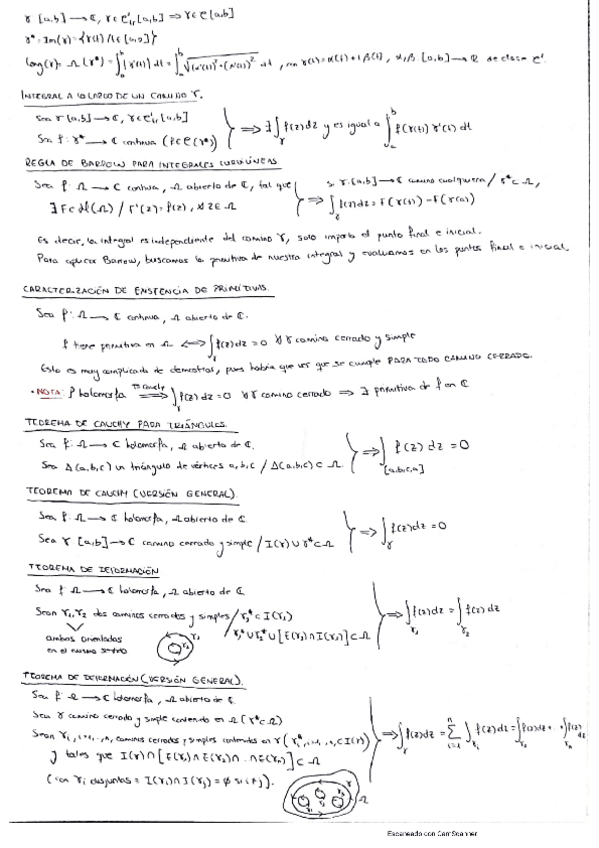 γ [a,b] → ℂ, γ∈C'₁[a,b] ⇒ γ∈C[a,b]
γ* = Im(γ) = {γ(t) / t∈[a,b]}
long(γ) = Λ(γ*) = ∫ₐᵇ |γ'(t)| dt = ∫ₐᵇ √((α'(t))² + (β'(t))²) dt, con γ(t) = α(t) + iβ(t), α, β: [a,b] → ℝ de clase C'.
INTEGRAL A LO LARGO DE UN CAMINO γ.
Sea γ [a,b] → ℂ, γ∈C'₁[a,b]
Sea f: γ* → ℂ continua (f∈C(γ*)) } ⇒ ∃ ∫_γ f(z)dz y es igual a ∫ₐᵇ f(γ(t)) γ'(t) dt
REGLA DE BARROW PARA INTEGRALES CURVILÍNEAS
Sea f: Ω → ℂ continua, Ω abierto de ℂ, tal que si γ: [a,b] → ℂ camino cualquiera / γ* ⊂ Ω,
∃ F∈H(Ω) / F'(z) = f(z), ∀ z∈Ω } ⇒ ∫_γ f(z)dz = F(γ(b)) − F(γ(a))
Es decir, la integral es independiente del camino γ, solo importa el punto final e inicial.
Para aplicar Barrow, buscamos la primitiva de nuestra integral y evaluamos en los puntos final e inicial.
CARACTERIZACIÓN DE EXISTENCIA DE PRIMITIVAS.
Sea f: Ω → ℂ continua, Ω abierto de ℂ.
f tiene primitiva en Ω ⇔ ∫_γ f(z)dz = 0 ∀ γ camino cerrado y simple
Esto es muy complicado de demostrar, pues habría que ver que se cumple PARA TODO CAMINO CERRADO.
• NOTA: f holomorfa ⇒ ∫_γ f(z)dz = 0 ∀ γ camino cerrado ⇒ ∃ primitiva de f en ℂ
TEOREMA DE CAUCHY PARA TRIÁNGULOS.
Sea f: Ω → ℂ holomorfa, Ω abierto de ℂ.
Sea Δ(a,b,c) un triángulo de vértices a,b,c / Δ(a,b,c) ⊂ Ω } ⇒ ∫_[a,b,c,a] f(z) dz = 0
TEOREMA DE CAUCHY (VERSIÓN GENERAL).
Sea f: Ω → ℂ holomorfa, Ω abierto de ℂ
Sea γ [a,b] → ℂ camino cerrado y simple / I(γ) ∪ γ* ⊂ Ω } ⇒ ∫_γ f(z)dz = 0
TEOREMA DE DEFORMACIÓN
Sea f: Ω → ℂ holomorfa, Ω abierto de ℂ
Sean γ₁, γ₂ dos caminos cerrados y simples / γ₂* ⊂ I(γ₁) } ⇒ ∫_γ₁ f(z)dz = ∫_γ₂ f(z) dz
γ₁* ∪ γ₂* ∪ [E(γ₂) ∩ I(γ₁)] ⊂ Ω
ambos orientados
en el mismo sentido
γ₁
γ₂
TEOREMA DE DEFORMACIÓN (VERSIÓN GENERAL).
Sea f: Ω → ℂ holomorfa, Ω abierto de ℂ.
Sea γ camino cerrado y simple contenido en Ω (γ* ⊂ Ω)
Sean γᵢ, i=1,..,n, caminos cerrados y simples contenidos en γ (γᵢ*, i=1,..,n, ⊂ I(γ)) } ⇒ ∫_γ f(z)dz = Σᵢ₌₁ⁿ ∫_γᵢ f(z)dz = ∫_γ₁ f(z)dz + ... + ∫_γₙ f(z)dz
y tales que I(γ) ∩ [E(γ₁) ∩ E(γ₂) ∩ ... ∩ E(γₙ)] ⊂ Ω
(con γᵢ disjuntos = I(γᵢ) ∩ I(γⱼ) = ∅ si i≠j).
Ω
Escaneado con CamScanner